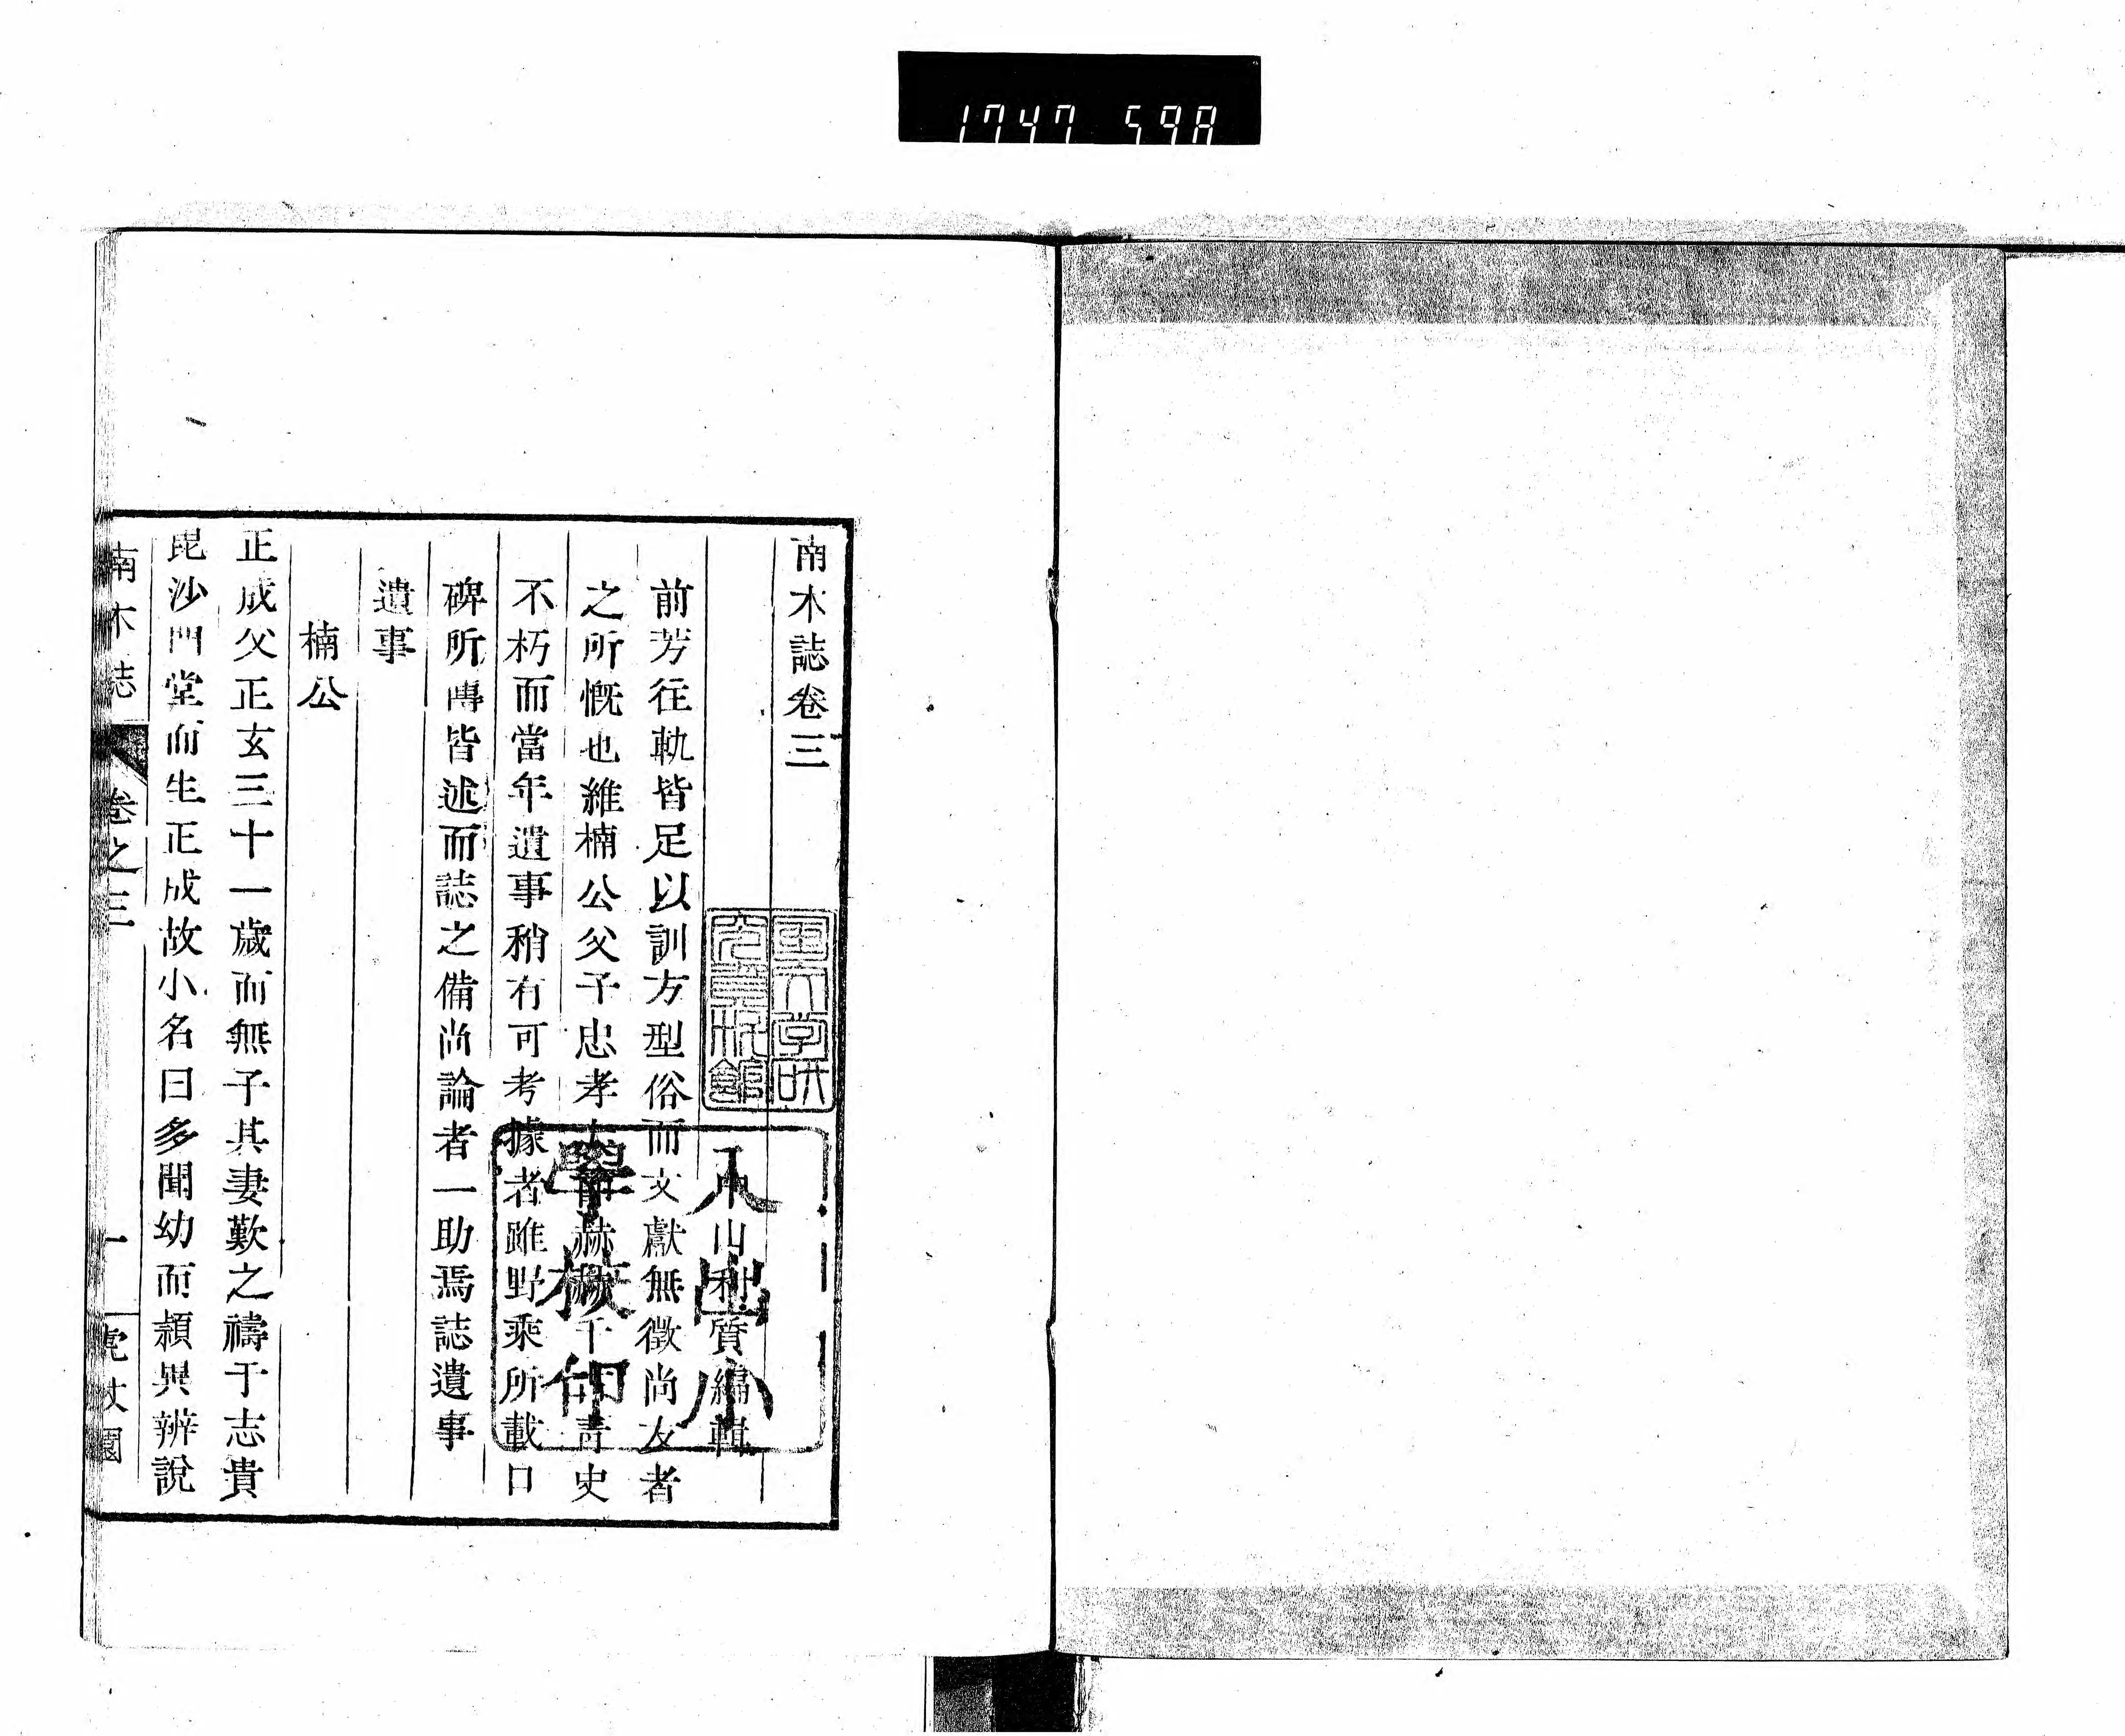 1747 598
南木誌卷三
中山利質編輯
前芳往軌皆足以訓方型俗而文獻無徵尚友者
之所慨也維楠公父子忠孝大節赫赫千古青史
不朽而當年遺事稍有可考據者雖野乘所載口
碑所傳皆述而誌之備尚論者一助焉誌遺事
遺事
楠公
正成父正玄三十一歲而無子其妻歎之禱于志貴
毘沙門堂而生正成故小名曰多聞幼而穎異辨說
南木誌
卷之三
一
虎杖園
國文学研
究資料館
小
學校印